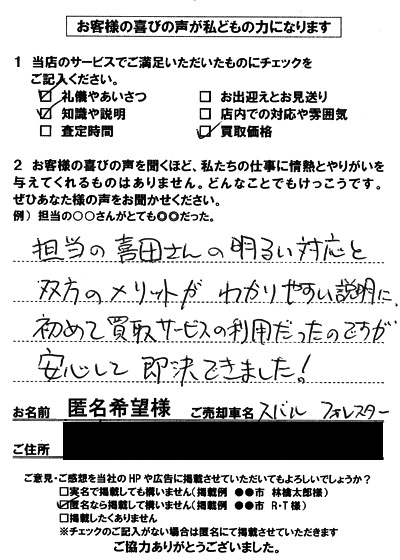 お客様の喜びの声が私どもの力になります
1 当店のサービスでご満足いただいたものにチェックを
ご記入ください。
☑ 礼儀やあいさつ □ お出迎えとお見送り
☑ 知識や説明 □ 店内での対応や雰囲気
□ 査定時間 ☑ 買取価格
2 お客様の喜びの声を聞くほど、私たちの仕事に情熱とやりがいを
与えてくれるものはありません。どんなことでもけっこうです。
ぜひあなた様の声をお聞かせください。
例）担当の○○さんがとても◎◎だった。
担当の喜田さんの明るい対応と
双方のメリットがわかりやすい説明に、
初めて買取サービスの利用だったのですが
安心して即決できました！
お名前 匿名希望様 ご売却車名 スバル フォレスター
ご住所
ご意見・ご感想を当社のHPや広告に掲載させていただいてもよろしいでしょうか？
□実名で掲載しても構いません（掲載例 ●●市 林檎太郎様）
☑匿名なら掲載して構いません（掲載例 ●●市 R・T様）
□掲載したくありません
※チェックのご記入がない場合は匿名にて掲載させていただきます
ご協力ありがとうございました。